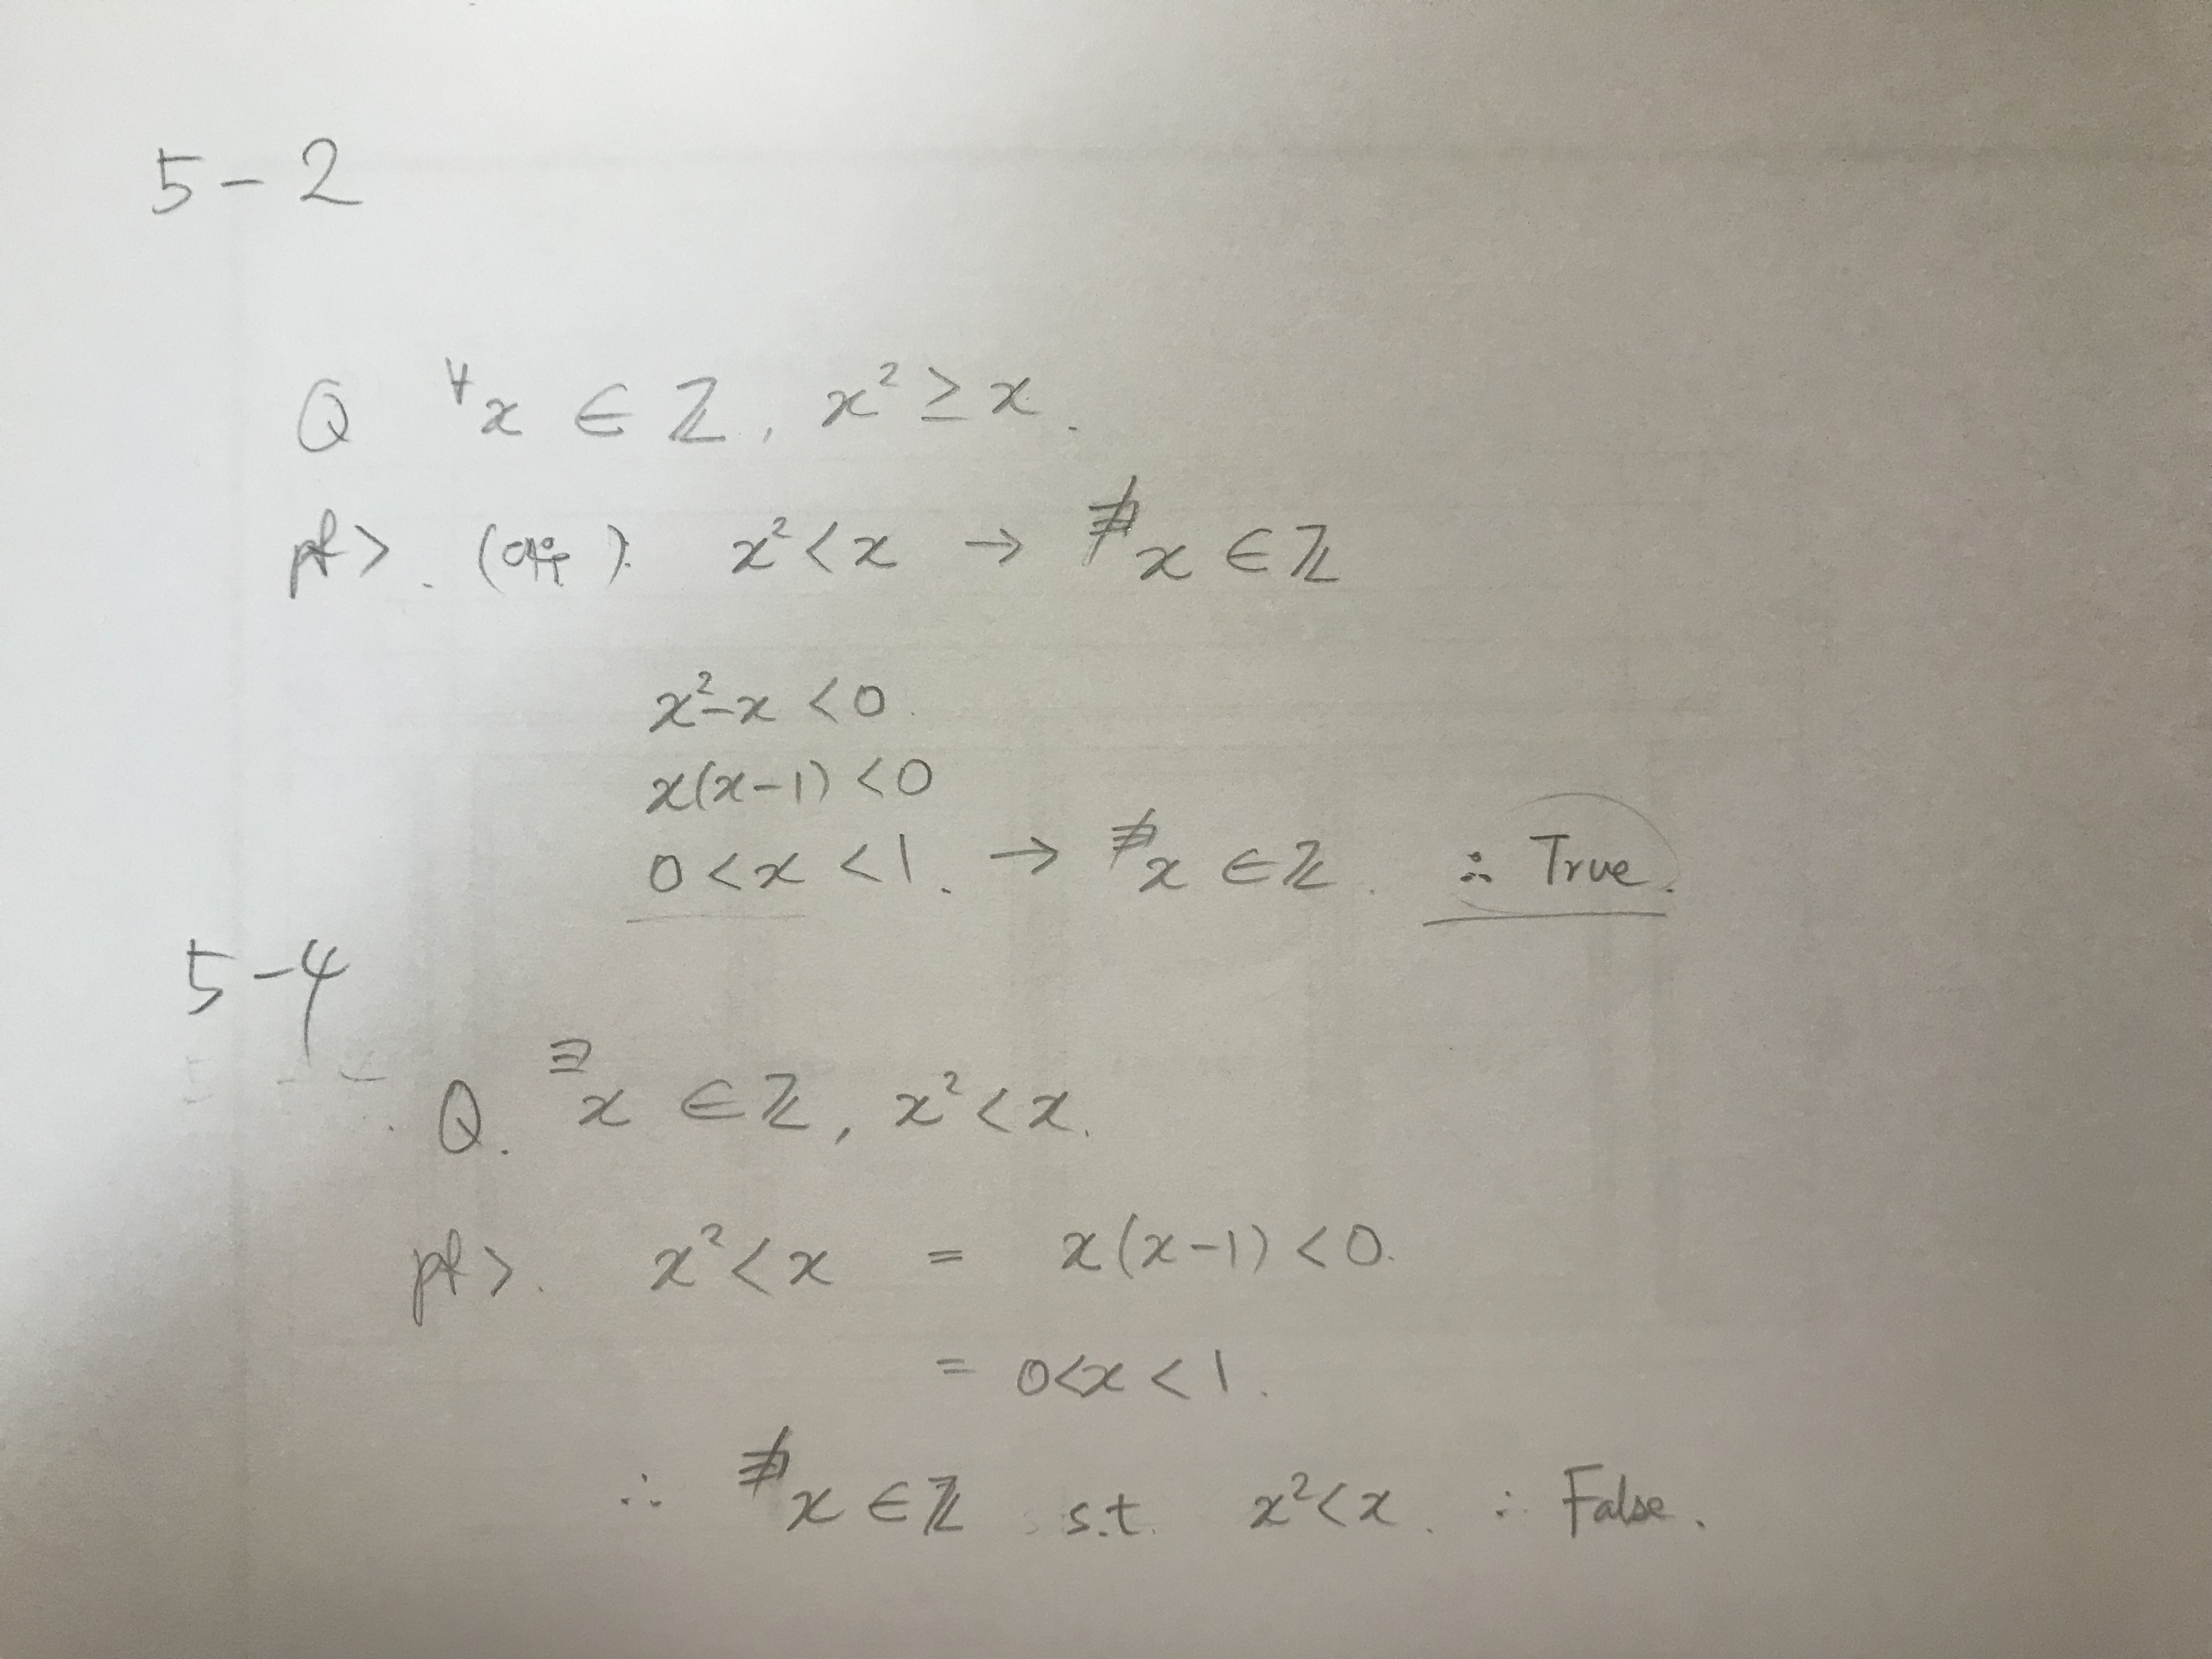 5-2
Q ∀x ∈ ℤ, x² ≥ x.
pf>. ( ). x² < x → ∄x ∈ ℤ
x²-x < 0.
x(x-1) < 0
0 < x < 1. → ∄x ∈ ℤ. ∴ True.
5-4
Q. ∃x ∈ ℤ, x² < x.
pf>. x² < x = x(x-1) < 0.
= 0<x < 1.
∴ ∄x ∈ ℤ s.t. x² < x. ∴ False.